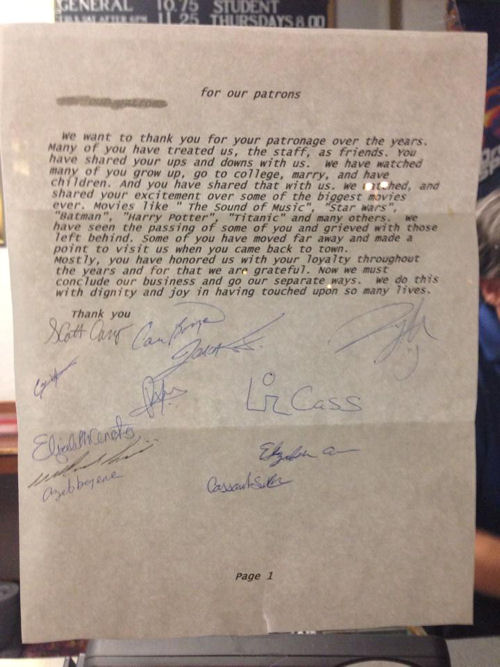 GENERAL 10.75 STUDENT
11.25 THURSDAYS 8.00
for our patrons
We want to thank you for your patronage over the years.
Many of you have treated us, the staff, as friends. You
have shared your ups and downs with us. We have watched
many of you grow up, go to college, marry, and have
children. And you have shared that with us. We watched, and
shared your excitement over some of the biggest movies
ever. Movies like " The Sound of Music", "Star Wars",
"Batman", "Harry Potter", "Titanic" and many others. We
have seen the passing of some of you and grieved with those
left behind. Some of you have moved far away and made a
point to visit us when you came back to town.
Mostly, you have honored us with your loyalty throughout
the years and for that we are grateful. Now we must
conclude our business and go our separate ways. We do this
with dignity and joy in having touched upon so many lives.
Thank you
Scott
Liz Cass
Page 1